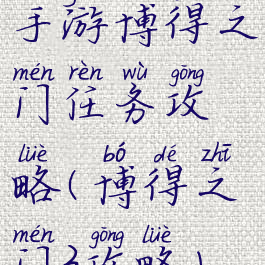 手游博得之
mén rèn wù gōng
门任务攻
lüè bó dé zhī
略(博得之
mén gōng lüè
门3攻略)